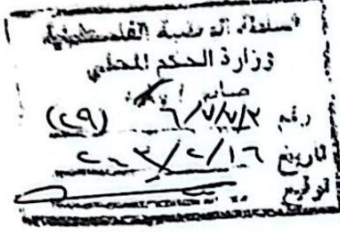 السلطة الوطنية الفلسطينية
وزارة الحكم المحلي
صادر
رقم ٦/٧/٧/٢ (٢٩)
تاريخ ٢٠٠٣/٢/١٦
توقيع